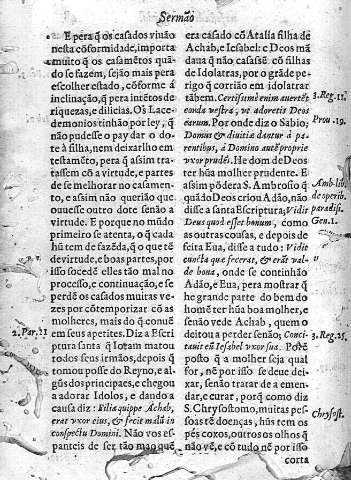 Sermão
E pera q̃ os casados viuão
nesta cõformidade, importa
muito q̃ os casamẽtos quãdo
se fazem, sejão mais pera
escolher estado, cõforme á
inclinação, q̃ pera intètos de
riquezas, e dilicias. Os Lace-
demonios tinhão por ley, q̃
não pudesse o pay dar o do-
te á filha, nem deixarlho em
testamẽto, pera q̃ assim tra-
tassem cõ a virtude, e partes
de se melhorar no casamen-
to, e assim não querião que
ouuesse outro dote senão a
virtude. E porque no mũdo
primeiro se atenta, o q̃ cada
hũ tem de fazẽda, q̃ o que tẽ
de virtude, e boas partes, por
isso socedê elles tão mal no
processo, e continuação, e se
perdẽ os casados muitas ve-
zes por cõtemporizar cõ as
molheres, mais do q̃ conuẽ
em seus apetites. Diz a Scri-
2. Par. 21
ptura santa q̃ Ioram matou
todos seus irmãos, depois q̃
tomou posse do Reyno, e al-
gũs dos principaes, e chegou
a adorar Idolos, e dando a
causa diz: Filia quippe Achab,
erat vxor eius, & fecit malũ in
conspectu Domini. Não vos es-
panteis de ser tão mao quẽ
era casado cõ Atalia filha de
Achab, e Iesabel: e Deos mã
daua q̃ não casassẽ cõ filhas
de Idolatras, por o grãde pe-
rigo q̃ corrião em idolatrarẽ
3. Reg. 11.
tãbem. Certissimè enim auertẽt
corda vestra, vt adoretis Deos
earum. Por onde diz o Sabio;
Prou. 19.
Domus & diuitiæ dantur à pa-
rentibus, à Domino autẽ propriè
vxor prudẽs. He dom de Deos
ter hũa molher prudente. E
assim põdera S. Ambrosio q̃
quãdo Deos criou Adão, não
disse a santa Escriptura; Vidit
Gen. 1.
Deus quod esset bonum, como
as outras cousas, e depois de
feita Eua, disse a tudo: Vidit
cuncta que fecerat, & erãt val-
de bona, onde se continhão
Adão, e Eua, pera mostrar q̃
he grande parte do bem do
homẽ ter hũa boa molher, e
senão vede Achab, quem o
deitou a perder senão; Conci-
3. Reg. 25.
tauit eũ Iesabel vxor sua. Postẽ
posto q̃ a molher seja qual
for, nẽ por isso se deue dei-
xar, senão tratar de a emen-
dar, e curar, porq̃ como diz
S. Chrysostomo, muitas pes-
Chrysost.
soas tẽ doenças, hũs tem os
pès coxos, outros os olhos q̃
não vẽ, e cõ tudo nẽ por isso
corta